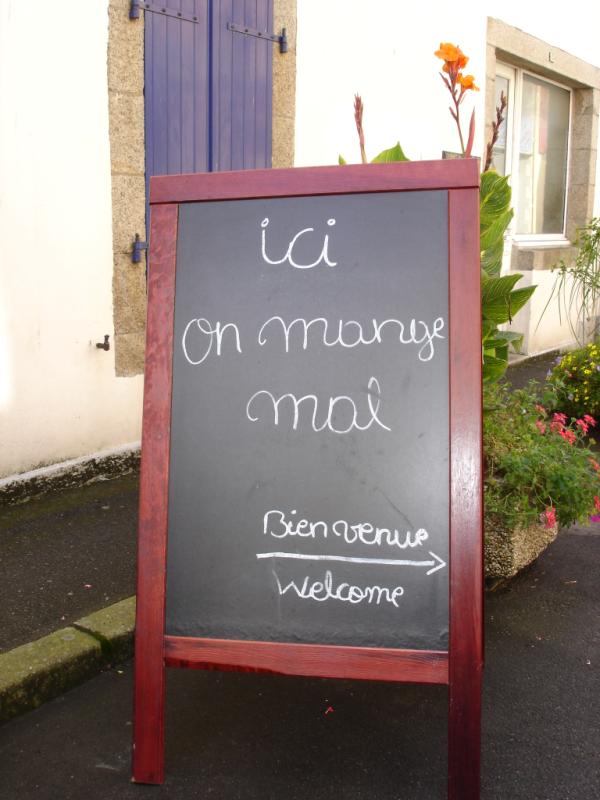 ici
on mange
mal
Bienvenue
Welcome